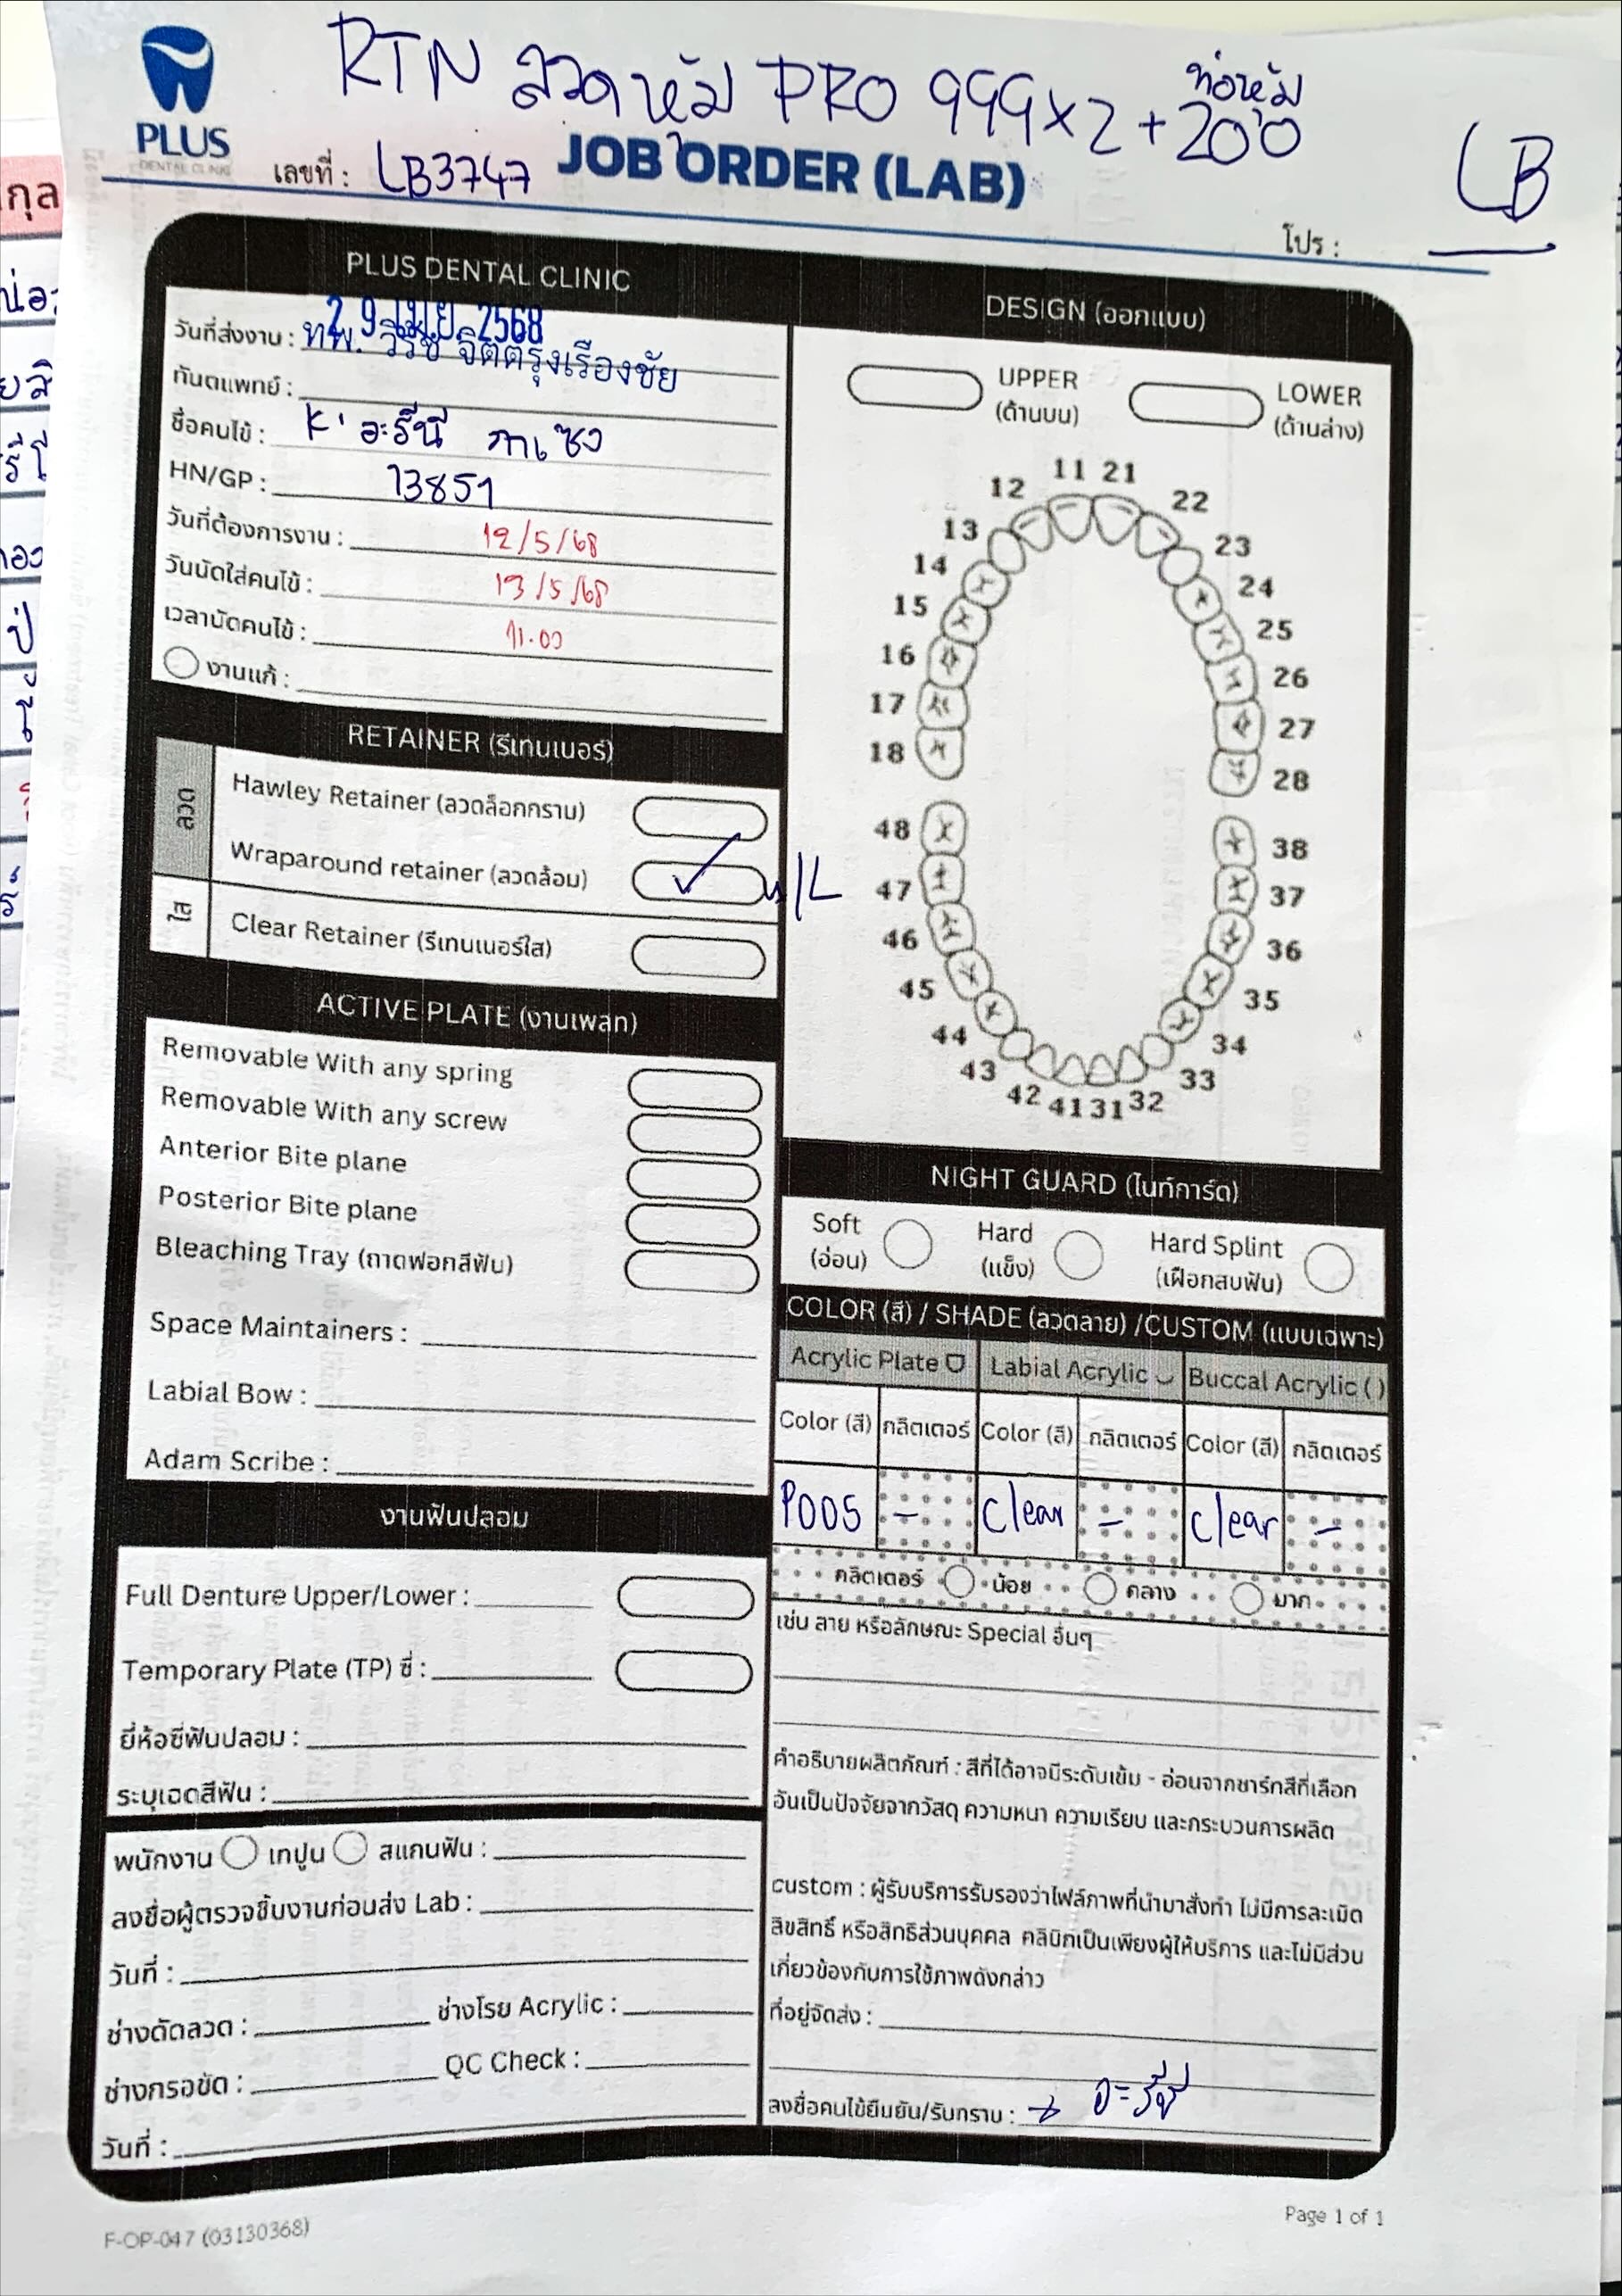 RTN ลวดหุ้ม PRO 999x2 + 200
ท่อหุ้ม
PLUS
DENTAL CLINIC
เลขที่ : LB3747
JOB ORDER (LAB)
LB
โปร :
PLUS DENTAL CLINIC
วันที่ส่งงาน : 29 เม.ย. 2568
ทพ. วิรัช จิตตรุงเรืองชัย
ทันตแพทย์ :
ชื่อคนไข้ : K' อะรีนี กาเซง
HN/GP : 13851
วันที่ต้องการงาน : 12/5/68
วันนัดใส่คนไข้ : 13/5/68
เวลานัดคนไข้ : 11.00
งานแก้ :
RETAINER (รีเทนเนอร์)
ลวด
Hawley Retainer (ลวดล็อกกราม)
Wraparound retainer (ลวดล้อม) ✓ u/L
ใส
Clear Retainer (รีเทนเนอร์ใส)
ACTIVE PLATE (งานเพลท)
Removable With any spring
Removable With any screw
Anterior Bite plane
Posterior Bite plane
Bleaching Tray (ถาดฟอกสีฟัน)
Space Maintainers :
Labial Bow :
Adam Scribe :
งานฟันปลอม
Full Denture Upper/Lower :
Temporary Plate (TP) ซี่ :
ยี่ห้อซี่ฟันปลอม :
ระบุเฉดสีฟัน :
พนักงาน เทปูน สแกนฟัน :
ลงชื่อผู้ตรวจชิ้นงานก่อนส่ง Lab :
วันที่ :
ช่างดัดลวด : ช่างโรย Acrylic :
ช่างกรอขัด : QC Check :
วันที่ :
DESIGN (ออกแบบ)
UPPER (ด้านบน)
LOWER (ด้านล่าง)
11 21
12 22
13 23
14 24
15 25
16 26
17 27
18 28
48 38
47 37
46 36
45 35
44 34
43 33
42 41 31 32
NIGHT GUARD (ไนท์การ์ด)
Soft (อ่อน)
Hard (แข็ง)
Hard Splint (เฝือกสบฟัน)
COLOR (สี) / SHADE (ลวดลาย) /CUSTOM (แบบเฉพาะ)
Acrylic Plate Labial Acrylic Buccal Acrylic ( )
Color (สี) กลิตเตอร์ Color (สี) กลิตเตอร์ Color (สี) กลิตเตอร์
P005 - Clear - Clear -
กลิตเตอร์ น้อย กลาง มาก
เช่น ลาย หรือลักษณะ Special อื่นๆ
คำอธิบายผลิตภัณฑ์ : สีที่ได้อาจมีระดับเข้ม - อ่อนจากชาร์ทสีที่เลือก
อันเป็นปัจจัยจากวัสดุ ความหนา ความเรียบ และกระบวนการผลิต
custom : ผู้รับบริการรับรองว่าไฟล์ภาพที่นำมาสั่งทำ ไม่มีการละเมิด
ลิขสิทธิ์ หรือสิทธิส่วนบุคคล คลินิกเป็นเพียงผู้ให้บริการ และไม่มีส่วน
เกี่ยวข้องกับการใช้ภาพดังกล่าว
ที่อยู่จัดส่ง :
ลงชื่อคนไข้ยืนยัน/รับทราบ :
F-OP-047 (03130368)
Page 1 of 1